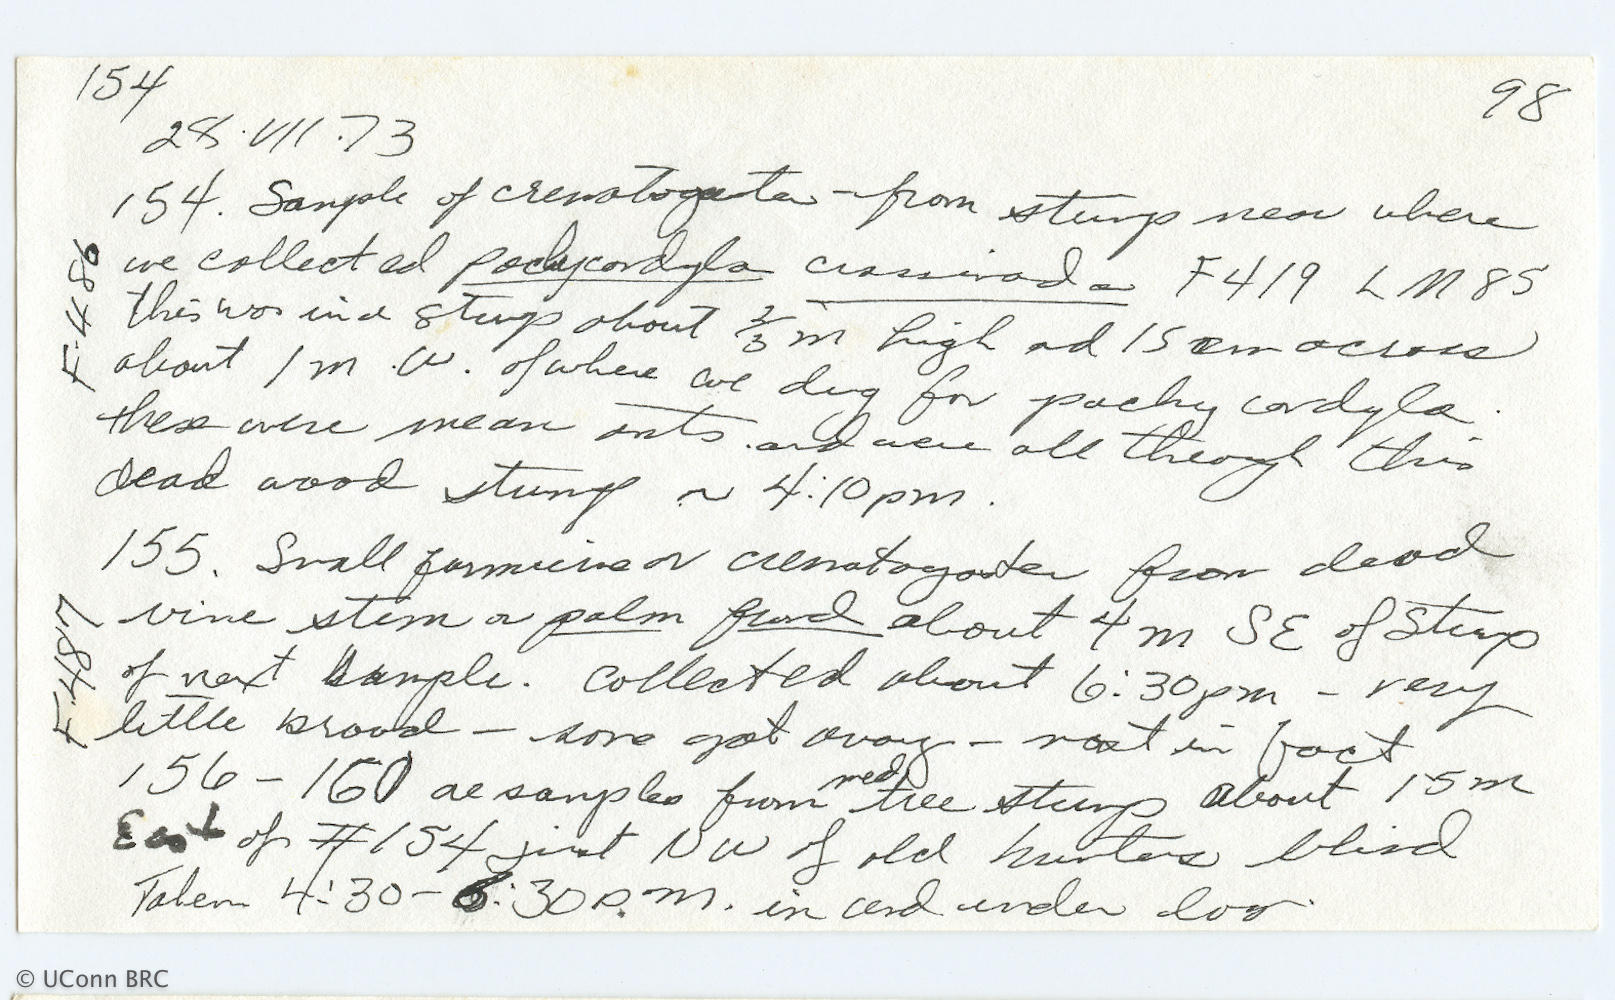 154
98
28.VII.73
154. Sample of crematogaster - from stump near where
we collected pachycordyla crassinoda F419 LM85
this was in a stump about 2/3 m high ad 15 cm across
about 1 m .W. of where we dug for pachycordyla.
these were mean ants. and were all through this
dead wood stump ~ 4:10 pm.
F.486
155. Small formicine or crematogaster from dead
vine stem or palm frond about 4 m SE of Stump
of next sample. Collected about 6:30 pm - very
little brood - some got away - most in fact
F.487
156 - 160 are samples from med tree stump about 15 m
East of #154 just NW of old hunters blind
Taken 4:30 - 6:30 P.M. in and under
© UConn BRC